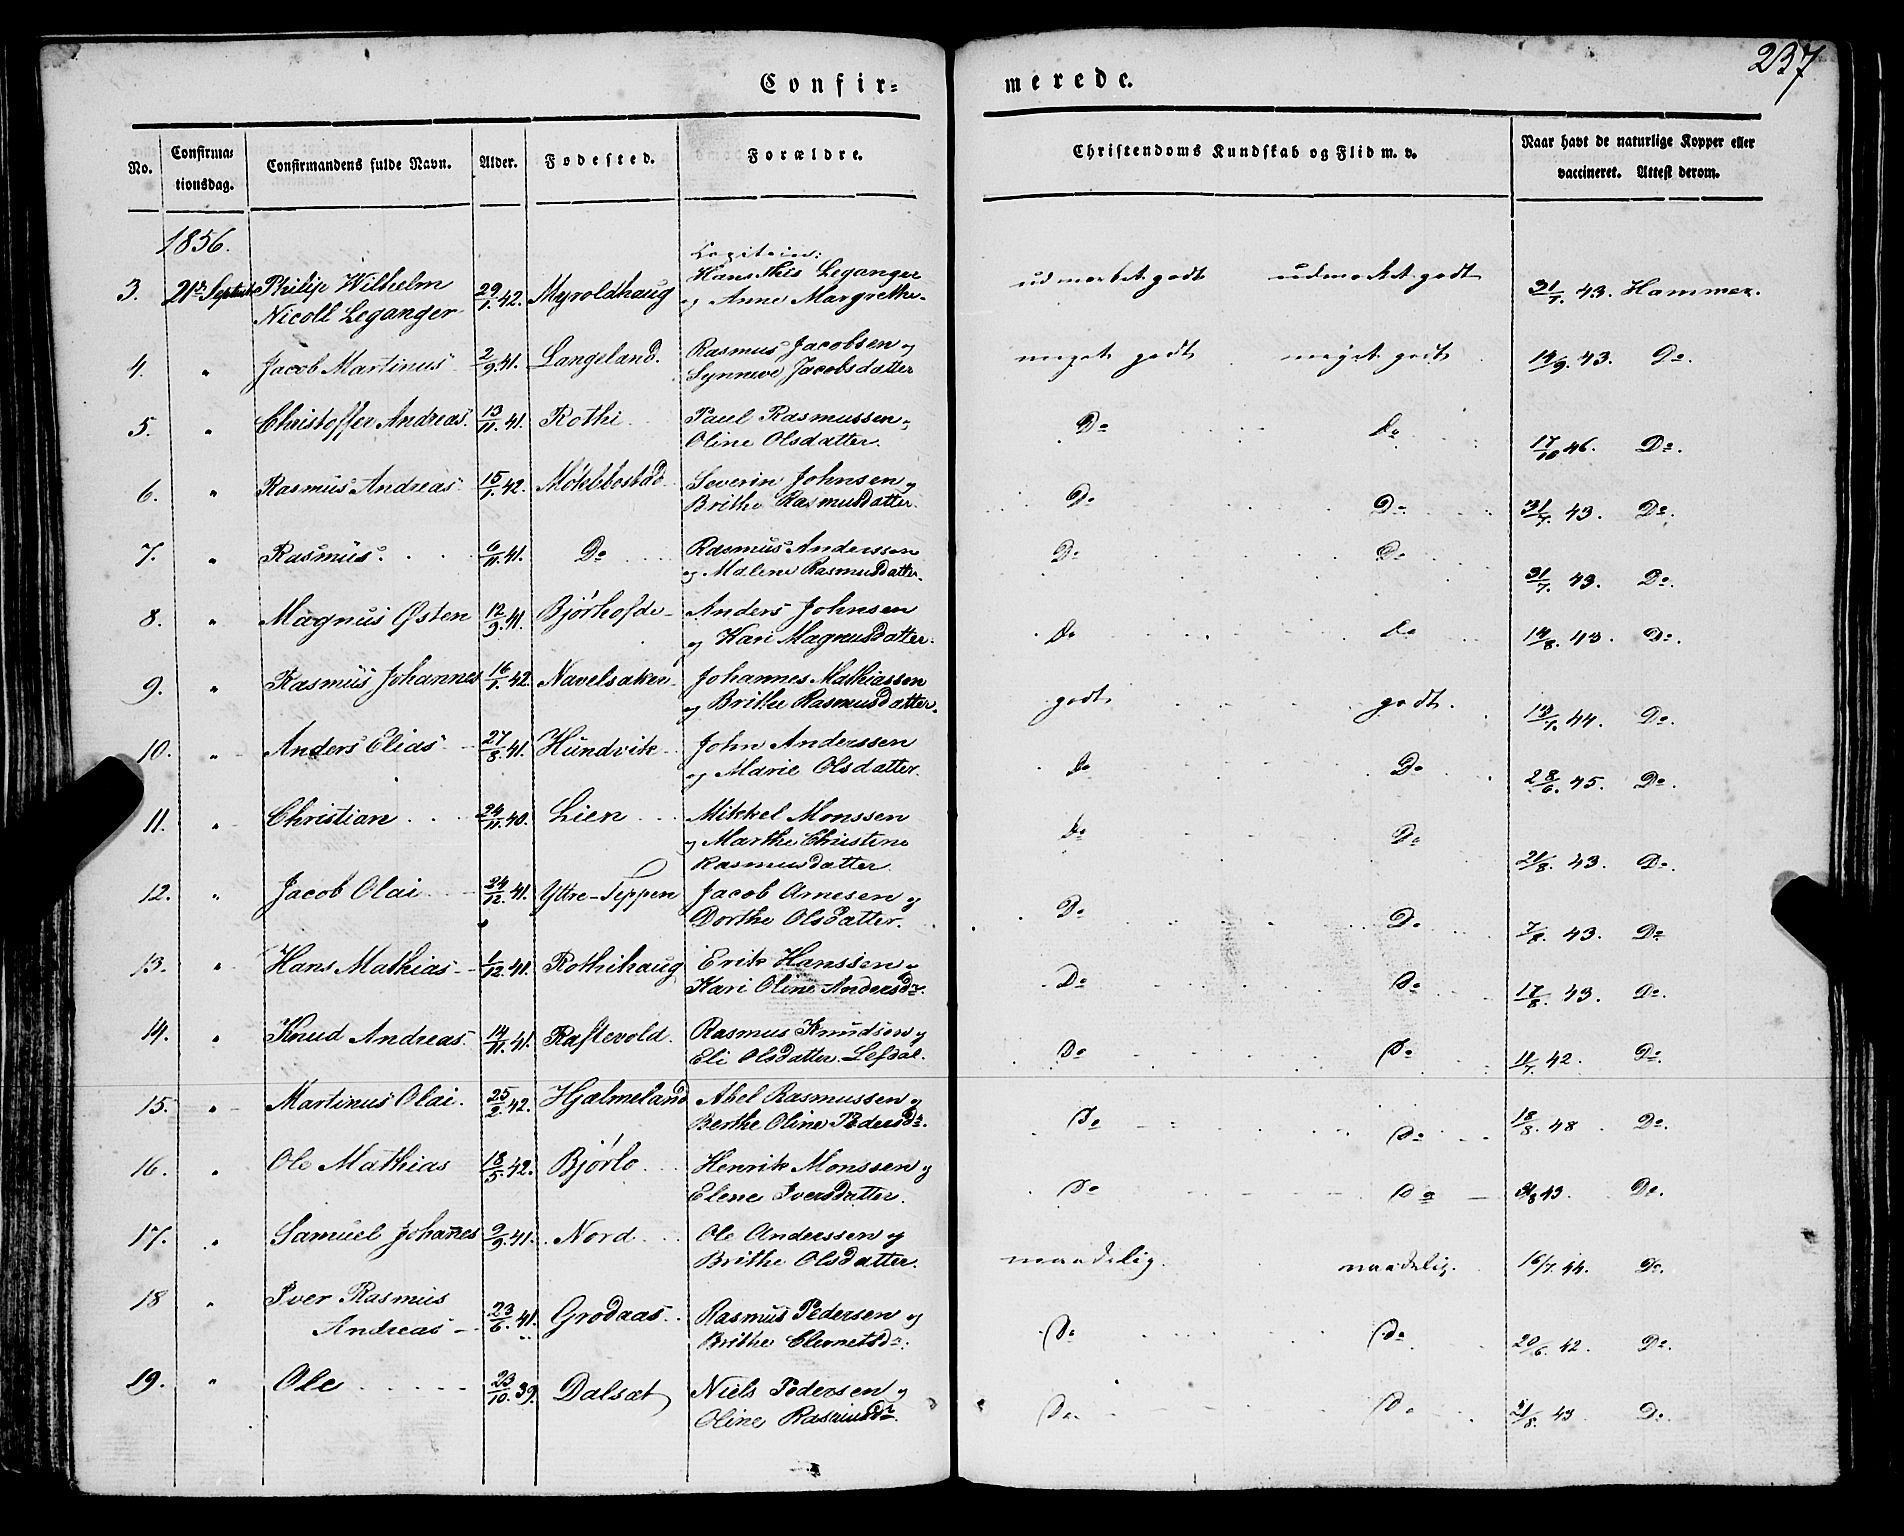 237
Confir=
merede.
No.
Confirma=
tionsdag.
Confirmandens fulde Navn.
Alder.
Fodested.
Forældre.
Christendoms Kundskab og Flid m. v.
Naar havt de naturlige Kopper eller
vaccineret. Attest derom.
1856.
Capitain:
3. 21de Septmbr Philip Wilhelm 29/1. 42. Myroldhaug Hans This Leganger udmærket godt udmærket godt 31/7. 43. Hammer.
Nicoll Leganger og Anne Margrethe.
4. " Jacob Martinus 2/9. 41. Langeland. Rasmus Jacobsen og meget godt meget godt 14/9. 43. Do.
Synneve Jacobsdatter
5. " Christoffer Andreas. 13/11. 41. Rothi Paul Rasmussen og Do Do 17/10 46. Do.
Oline Olsdatter.
6. " Rasmus Andreas. 15/1. 42. Møklebostad Severin Johnsen og Do Do 31/7. 43. Do.
Brithe Rasmusdatter.
7. " Rasmus. 6/11. 41. Do Rasmus Anderssen Do Do 31/7. 43. Do.
og Malene Rasmusdatter.
8. " Magnus Østen 12/9. 41. Bjørhofde Anders Johnsen Do Do 14/8. 43. Do.
og Kari Magnusdatter.
9. " Rasmus Johannes 16/1. 42. Navelsaker Johannes Mathiassen godt godt. 44. Do.
og Brithe Rasmusdatter.
10. " Anders Elias 27/8. 41. Hundvik John Anderssen Do Do 28/6. 45. Do.
og Marie Olsdatter.
11. " Christian 24/11. 40. Lien Mikkel Monssen Do Do 21/8. 43. Do.
og Marthe Christene
Rasmusdatter.
12. " Jacob Olai 24/12. 41. Yttre-Leppen Jacob Arnesen og Do Do 7/8. 43. Do
Dorthe Olsdatter.
13. " Hans Mathias 1/12. 41. Rothihaug Erik Hanssen og Do Do 17/8. 43. Do.
Kari Oline Andersdr.
14. " Knud Andreas. 14/11. 41. Raftevold. Rasmus Knudsen og Do Do 11/7. 42. Do.
Eli Olsdatter Lefdal.
15. " Martinus Olai. 25/2. 42. Hjelmeland Abel Rasmussen og Do Do 18/8. 48. Do.
Berthe Oline Pedersdr.
16. " Ole Mathias 18/5. 42. Bjørlo Henrik Monssen og Do Do 43. Do.
Elene Iversdatter.
17. " Samuel Johanes 9/9. 41. Nord Ole Anderssen og maadelig. maadelig. 16/7. 44. Do.
Brithe Olsdatter.
18 " Iver Rasmus 23/6. 41. Grodaas Rasmus Pedersen og Do Do 20/6. 42. Do.
Andreas Brithe Clemetsdr.
19. " Ole 23/10. 39. Dalsæt Niels Pedersen og Do. Do 21/8. 43 Do.
Oline Rasmusdr.